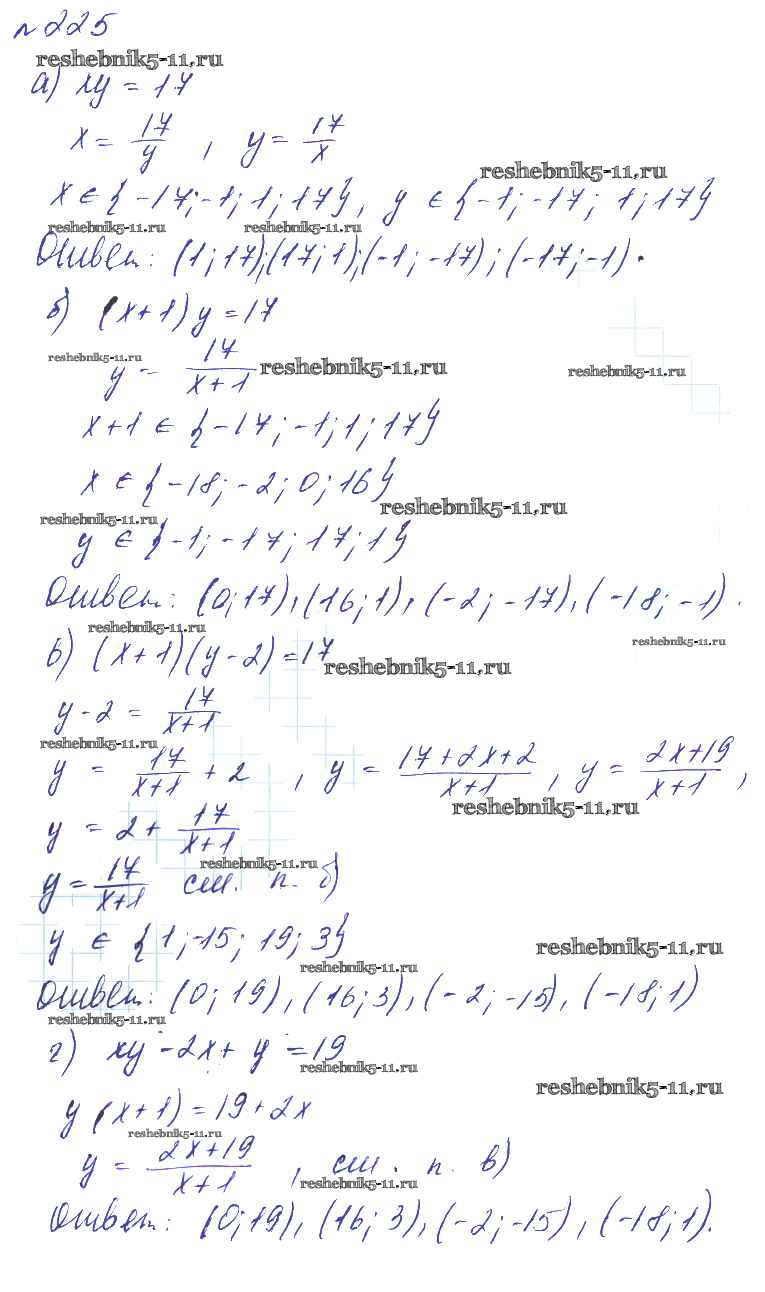 №225
reshebnik5-11.ru
а) xy = 17
x = 17/y , y = 17/x
reshebnik5-11.ru
x ∈ {-17; -1; 1; 17}, y ∈ {-1; -17; 1; 17}
reshebnik5-11.ru reshebnik5-11.ru
Ответ: (1; 17); (17; 1); (-1; -17); (-17; -1).
б) (x+1)y = 17
reshebnik5-11.ru
y = 17/(x+1)
reshebnik5-11.ru reshebnik5-11.ru
x+1 ∈ {-17; -1; 1; 17}
x ∈ {-18; -2; 0; 16}
reshebnik5-11.ru
reshebnik5-11.ru
y ∈ {-1; -17; 17; 1}
Ответ: (0; 17), (16; 1), (-2; -17), (-18; -1).
reshebnik5-11.ru reshebnik5-11.ru
в) (x+1)(y-2) = 17
reshebnik5-11.ru
y-2 = 17/(x+1)
reshebnik5-11.ru
y = 17/(x+1) + 2 , y = (17+2x+2)/(x+1) , y = (2x+19)/(x+1) ,
reshebnik5-11.ru
y = 2 + 17/(x+1)
reshebnik5-11.ru
y = 17/(x+1) см. п. б)
y ∈ {1; -15; 19; 3}
reshebnik5-11.ru
reshebnik5-11.ru
Ответ: (0; 19), (16; 3), (-2; -15), (-18; 1)
reshebnik5-11.ru
г) xy - 2x + y = 19
reshebnik5-11.ru
reshebnik5-11.ru
y(x+1) = 19 + 2x
reshebnik5-11.ru
y = (2x+19)/(x+1) , см. п. в)
reshebnik5-11.ru
Ответ: (0; 19), (16; 3), (-2; -15), (-18; 1).